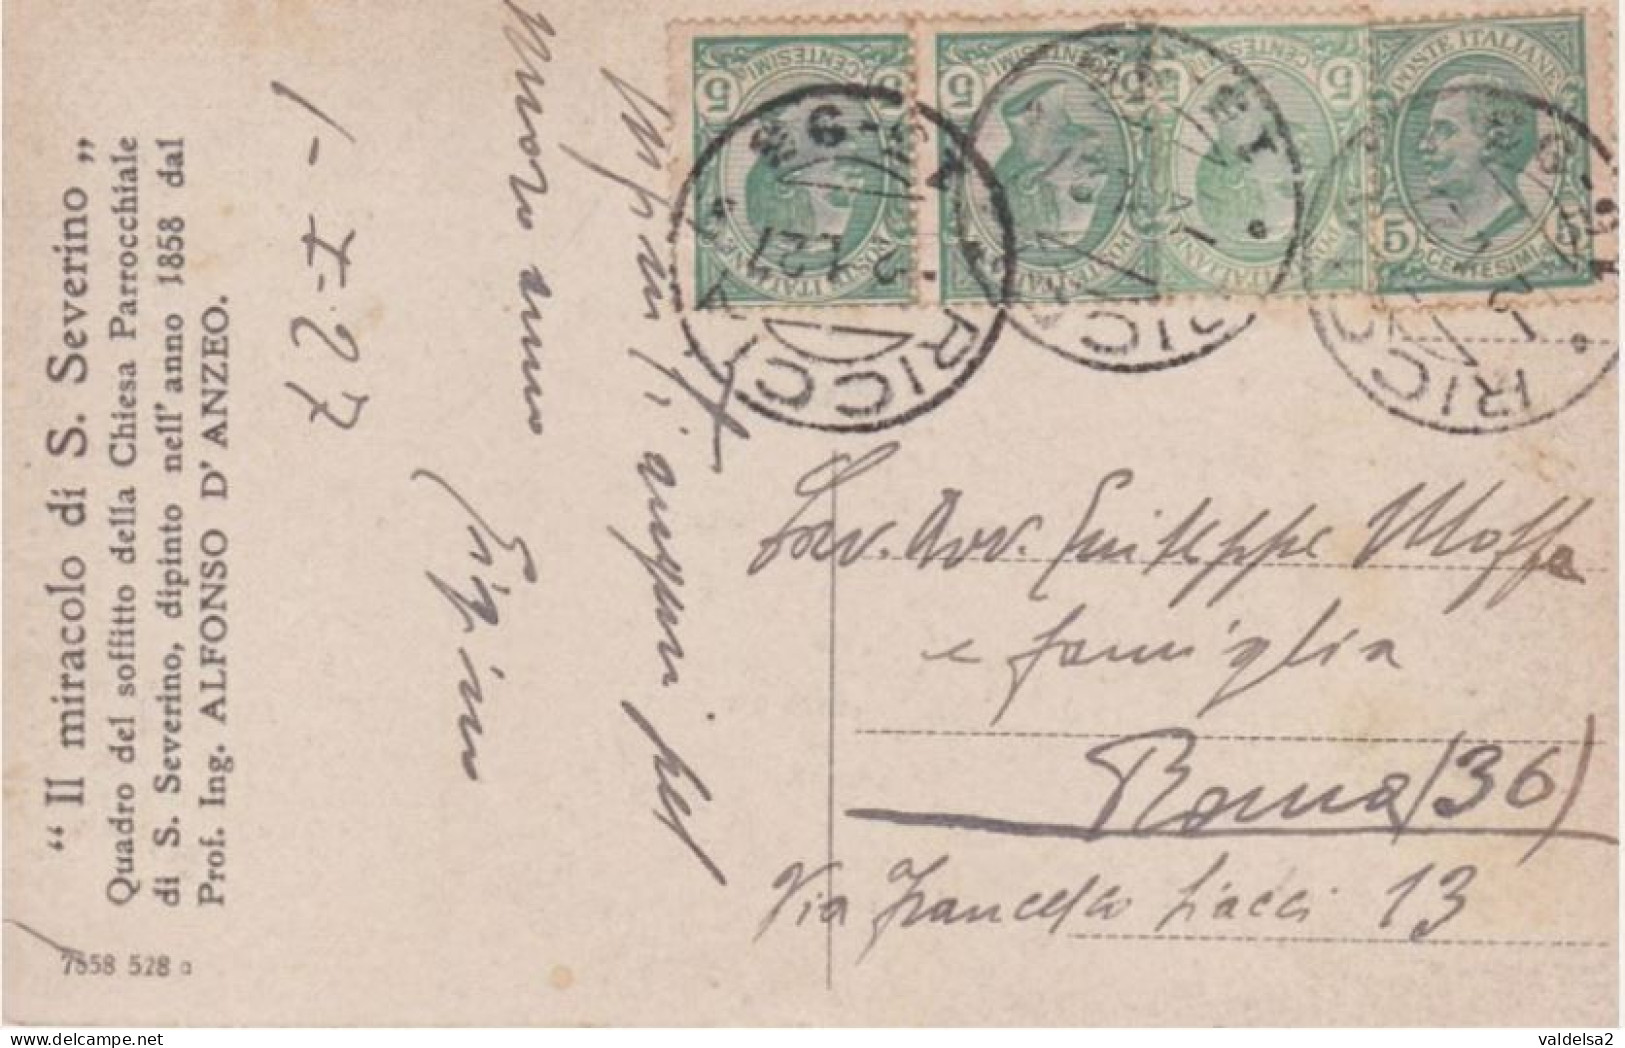 “ Il miracolo di S. Severino ”
Quadro del soffitto della Chiesa Parrocchiale
di S. Severino, dipinto nell' anno 1858 dal
Prof. Ing. ALFONSO D' ANZEO.
7558 528 a
1 - I - 27
auguri pel
nuovo anno
POSTE ITALIANE
5 CENTESIMI 5
5 CENTESIMI 5
5 CENTESIMI 5
5 CENTESIMI 5
RICCIA
2.1.27
Avv. Giuseppe Moffa
e famiglia
Roma (36)
Via Francesco 13
valdelsa2